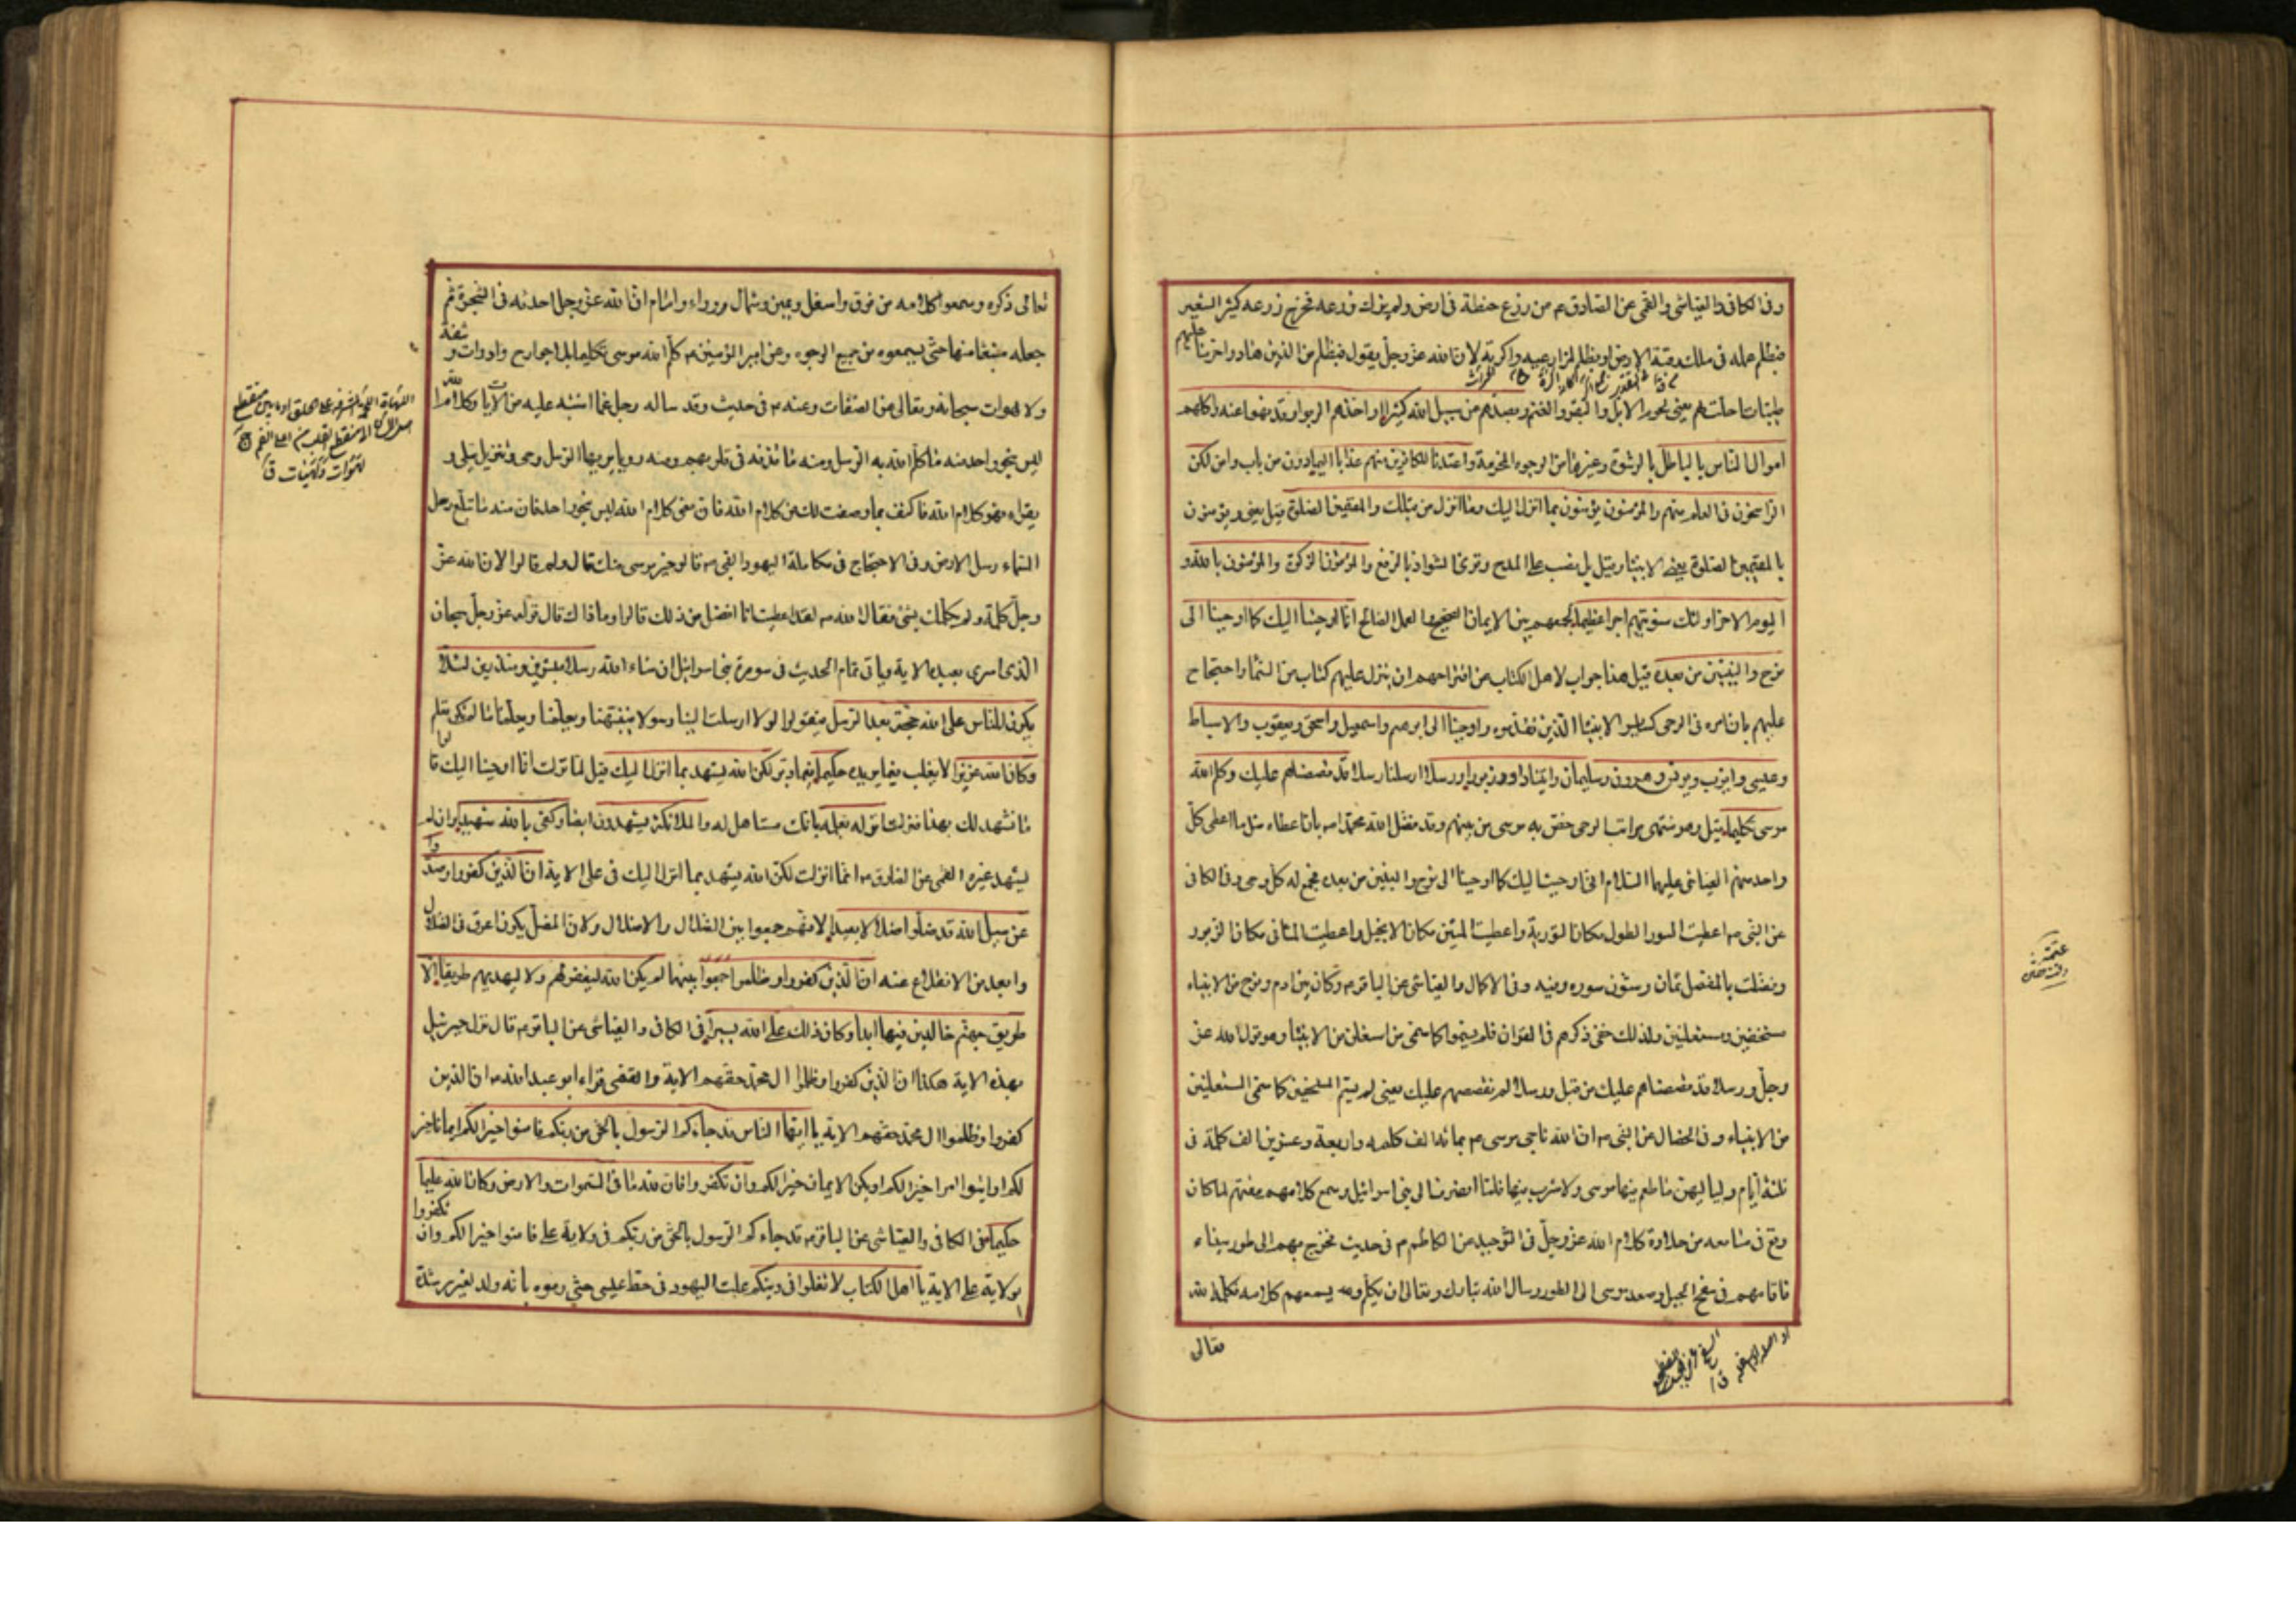 وفى الكافى والعياشى والقمى عن الصادق ع من زرع حنطة فى ارض ولم يزك زرعه فخرج زرعه كثير الشعير
فبظلم عمله فى ملك رقبة الارض او بظلم لمزارعيه واكرته لان الله عز وجل يقول فبظلم من الذين هادوا حرمنا عليهم
طيبات احلت لهم يعنى لحوم الابل والبقر والغنم وبصدهم عن سبيل الله كثيرا واخذهم الربوا وقد نهوا عنه واكلهم
اموال الناس بالباطل بالرشوة وغيرها من الوجوه المحرمة واعتدنا للكافرين منهم عذابا اليما دون من تاب وامن لكن
الراسخون فى العلم منهم والمؤمنون يؤمنون بما انزل اليك وما انزل من قبلك والمقيمين الصلوة قيل يعنى ويؤمنون
بالمقيمين الصلوة يعنى الانبياء وقيل بل نصب على المدح وقرئ فى الشواذ بالرفع والمؤتون الزكوة والمؤمنون بالله و
اليوم الاخر اولئك سنؤتيهم اجرا عظيما لجمعهم بين الايمان الصحيح والعمل الصالح انا اوحينا اليك كما اوحينا الى
نوح والنبيين من بعده قيل هذا جواب لاهل الكتاب عن اقتراحهم ان ينزل عليهم كتاب من السماء واحتجاج
عليهم بان امره فى الوحى كسائر الانبياء الذين تقدموه واوحينا الى ابرهيم واسمعيل واسحق ويعقوب والاسباط
وعيسى وايوب ويونس وهرون وسليمان واتينا داود زبورا ورسلا ارسلنا رسلا قد قصصناهم عليك وكلم الله
موسى تكليما قيل وهو منتهى مراتب الوحى خص به موسى من بينهم وقد فضل الله محمدا ص بان اعطاه مثل ما اعطى كل
واحد منهم العياشى عليهما السلام انى اوحيت اليك كما اوحينا الى نوح والنبيين من بعده فجمع له كل وحى وفى الكافى
عن النبى ص اعطيت السور الطول مكان التورية واعطيت المئين مكان الانجيل واعطيت المثانى مكان الزبور
وفضلت بالمفصل ثمان وستون سوره وفيه وفى الاكمال والعياشى عن الباقر ع وكان بين ادم ونوح من الانبياء
مستخفين ومستعلنين ولذلك خفى ذكرهم فى القران فلم يسموا كما سمى من استعلن من الانبياء وهو قول الله عز
وجل ورسلا قد قصصناهم عليك من قبل ورسلا لم نقصصهم عليك يعنى لم يسم المستخفين كما سمى المستعلنين
من الانبياء وفى الخصال عن النبى ص ان الله ناجى موسى ع بمائة الف كلمه واربعة وعشرين الف كلمة فى
ثلثة ايام ولياليهن ما طعم فيها موسى ولا شرب فيها فلما انصرف الى بنى اسرائيل وسمع كلامهم مقتهم لما كان
وقع فى مسامعه من حلاوة كلام الله عز وجل فى التوحيد عن الكاظم ع فى حديث فخرج بهم الى طور سيناء
فاقامهم فى سفح الجبل وصعد موسى الى الطور وسال الله تبارك وتعالى ان يكلمه ويسمعهم كلامه فكلمه الله
تعالى
تعالى ذكره وسمعوا كلامه من فوق واسفل ويمين وشمال ووراء وامام ان الله عز وجل احدثه فى الشجرة ثم
جعله منبعثا منها حتى يسمعوه من جميع الوجوه وعن امير المؤمنين ع كلم الله موسى تكليما بلا جوارح وادوات وشفة
ولا لهوات سبحانه وتعالى عن الصفات وعنه ع فى حديث وقد ساله رجل عما اشتبه عليه من الايات وكلام الله
ليس بنحو واحد منه ما كلم الله به الرسل ومنه ما قذفه فى قلوبهم ومنه رويا يريها الرسل وحى وتنزيل يتلى و
يقراء فهو كلام الله فاكتف بما وصفت لك من كلام الله فان معنى كلام الله ليس بنحو واحد فان منه ما تبلغ رسل
السماء رسل الارض وفى الاحتجاج فى مكالمة اليهود النبى ص قالوا خير موسى منك قال ولم قالوا لان الله عز
وجل كلمه ولم يكلمك بشئ فقال النبى ص لقد اعطيت انا افضل من ذلك قالوا وما ذاك قال قوله عز وجل سبحان
الذى اسرى بعبده الاية وياتى تمام الحديث فى سورة بنى اسرائيل ان شاء الله رسلا مبشرين ومنذرين لئلا
يكون للناس على الله حجة بعد الرسل فيقولوا لولا ارسلت الينا رسولا فينبهنا ويعلمنا ما لم نكن نعلم
وكان الله عزيزا لا يغلب فيما يريده حكيما فيما دبر لكن الله يشهد بما انزل اليك قيل لما نزلت انا اوحينا اليك قالوا
ما نشهد لك بهذا فنزلت انزله بعلمه بانك مستاهل له والملائكة يشهدون ايضا وكفى بالله شهيدا وان لم
يشهد غيره القمى عن الصادق ع انما انزلت لكن الله يشهد بما انزل اليك فى على الاية ان الذين كفروا وصدوا
عن سبيل الله قد ضلوا ضلالا بعيدا لانهم جمعوا بين الضلال والاضلال ولان المضل يكون اعرق فى الضلال
وابعد من الانقلاع عنه ان الذين كفروا وظلموا جمعوا بينهما لم يكن الله ليغفر لهم ولا ليهديهم طريقا الا
طريق جهنم خالدين فيها ابدا وكان ذلك على الله يسيرا فى الكافى والعياشى عن الباقر ع قال نزل جبرئيل
بهذه الاية هكذا ان الذين كفروا وظلموا ال محمد حقهم الاية والقمى قراء ابو عبد الله ع ان الذين
كفروا وظلموا ال محمد حقهم الاية يا ايها الناس قد جاءكم الرسول بالحق من ربكم فامنوا خيرا لكم ايمانا خيرا
لكم او ايتوا امرا خيرا لكم او يكن الايمان خيرا لكم وان تكفروا فان لله ما فى السموات والارض وكان الله عليما
حكيما فى الكافى والعياشى عن الباقر ع قد جاءكم الرسول بالحق من ربكم فى ولاية على فامنوا خيرا لكم وان تكفروا
بولاية على الاية يا اهل الكتاب لا تغلوا فى دينكم غلت اليهود فى حط عيسى حتى رموه بانه ولد لغير رشدة